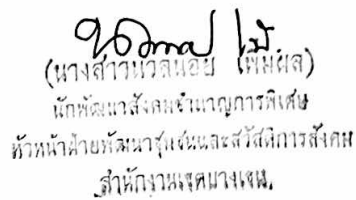 (นางสาวนวลน้อย เพิ่มผล)
นักพัฒนาสังคมชำนาญการพิเศษ
หัวหน้าฝ่ายพัฒนาชุมชนและสวัสดิการสังคม
สำนักงานเขตบางเขน